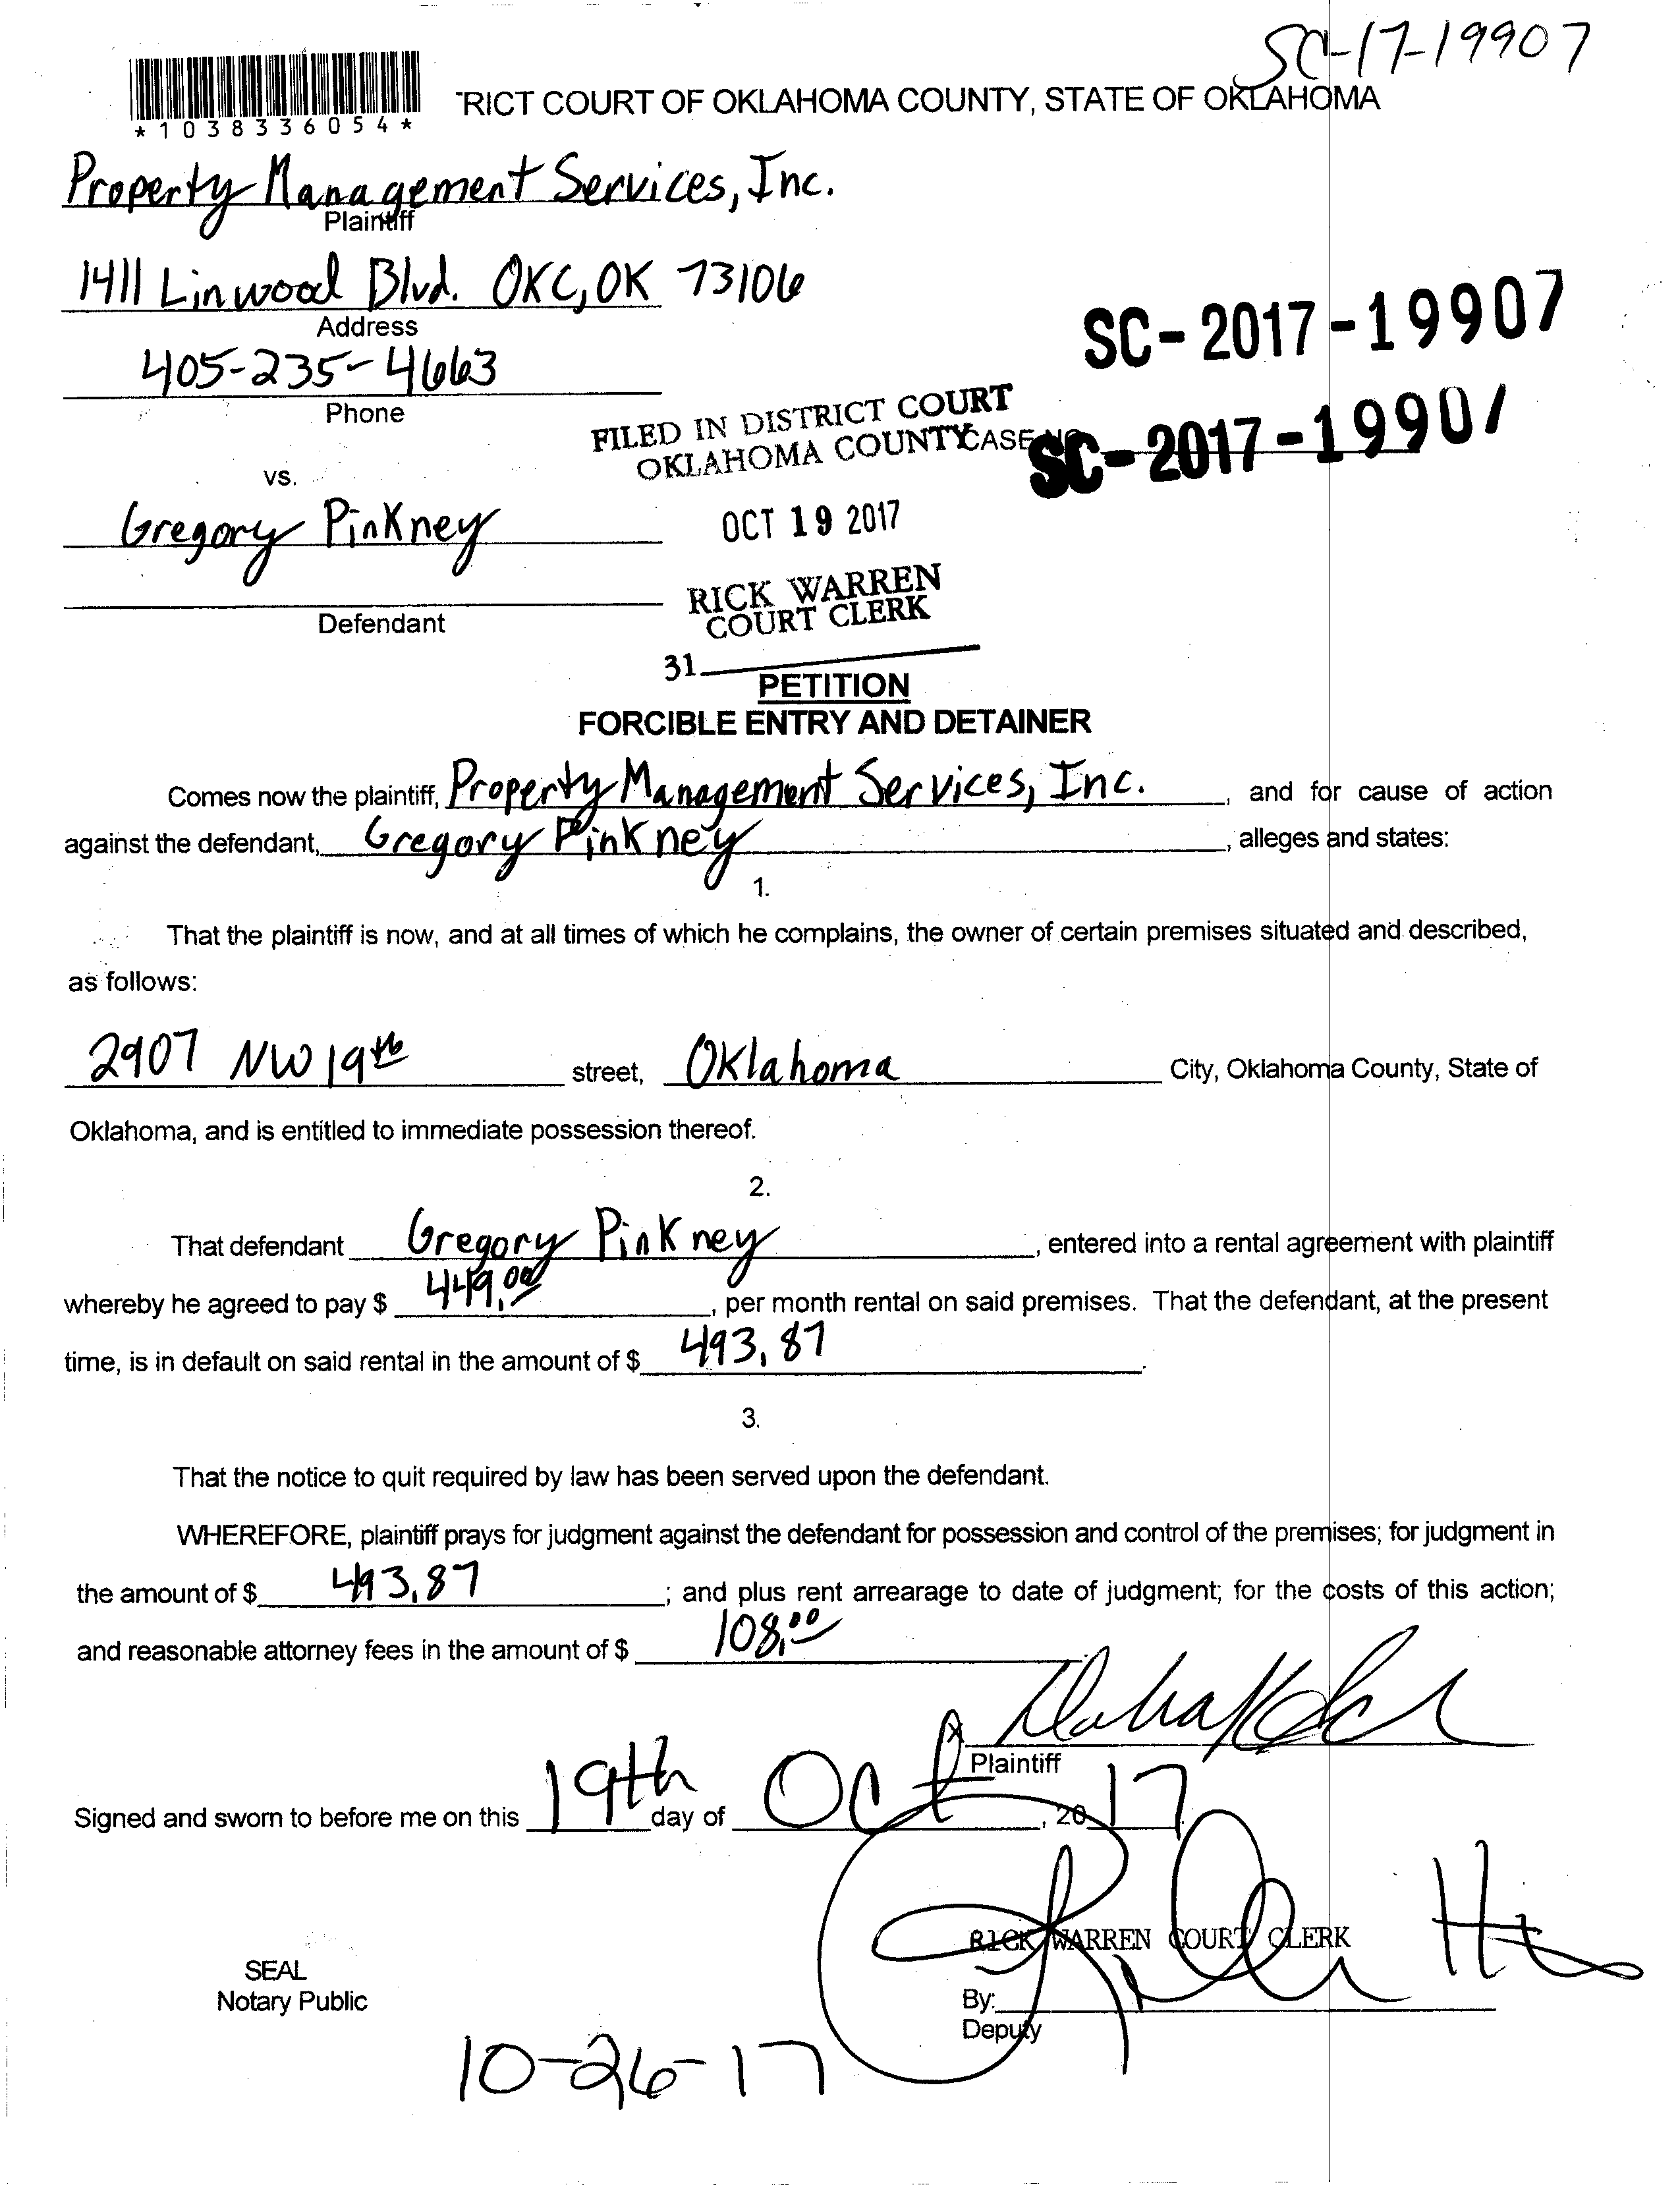 SC-17-19907
*1038336054*
RICT COURT OF OKLAHOMA COUNTY, STATE OF OKLAHOMA
Property Management Services, Inc.
Plaintiff
1411 Linwood Blvd. OKC, OK 73106
Address
SC-2017-19907
405-235-4663
Phone
FILED IN DISTRICT COURT
OKLAHOMA COUNTY CASE NO.
SC-2017-1990
vs.
Gregory Pinkney
OCT 19 2017
RICK WARREN
COURT CLERK
Defendant
31
PETITION
FORCIBLE ENTRY AND DETAINER
Comes now the plaintiff, Property Management Services, Inc., and for cause of action
against the defendant, Gregory Pinkney, alleges and states:
1.
That the plaintiff is now, and at all times of which he complains, the owner of certain premises situated and described,
as follows:
2907 NW 19th street, Oklahoma City, Oklahoma County, State of
Oklahoma, and is entitled to immediate possession thereof.
2.
That defendant Gregory Pinkney, entered into a rental agreement with plaintiff
whereby he agreed to pay $ 449.00, per month rental on said premises. That the defendant, at the present
time, is in default on said rental in the amount of $ 493.87.
3.
That the notice to quit required by law has been served upon the defendant.
WHEREFORE, plaintiff prays for judgment against the defendant for possession and control of the premises; for judgment in
the amount of $ 493.87; and plus rent arrearage to date of judgment; for the costs of this action;
and reasonable attorney fees in the amount of $ 108.00.
X
Plaintiff
Signed and sworn to before me on this 19th day of Oct, 2017.
RICK WARREN COURT CLERK
SEAL
Notary Public
By:
Deputy
10-26-17